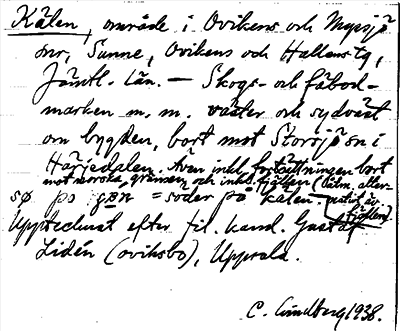 Kälen, område i Ovikens och Myssjö
snr, Sunne, Ovikens och Hallens tg,
Jämtl. län. — Skogs- och fäbod-
marken m. m. väster och sydväst
om bygden, bort mot Storsjön i
Härjedalen. Även inkl. fortsättningen bort
mot norska gränsen och inkl. fjällen (lälm. alter-
sø po = söder på kälen nativ är
fjällen).
Upptecknat efter fil. kand. Gustaf
Lidén (oviksbo), Uppsala.
C. Lindberg 1938.